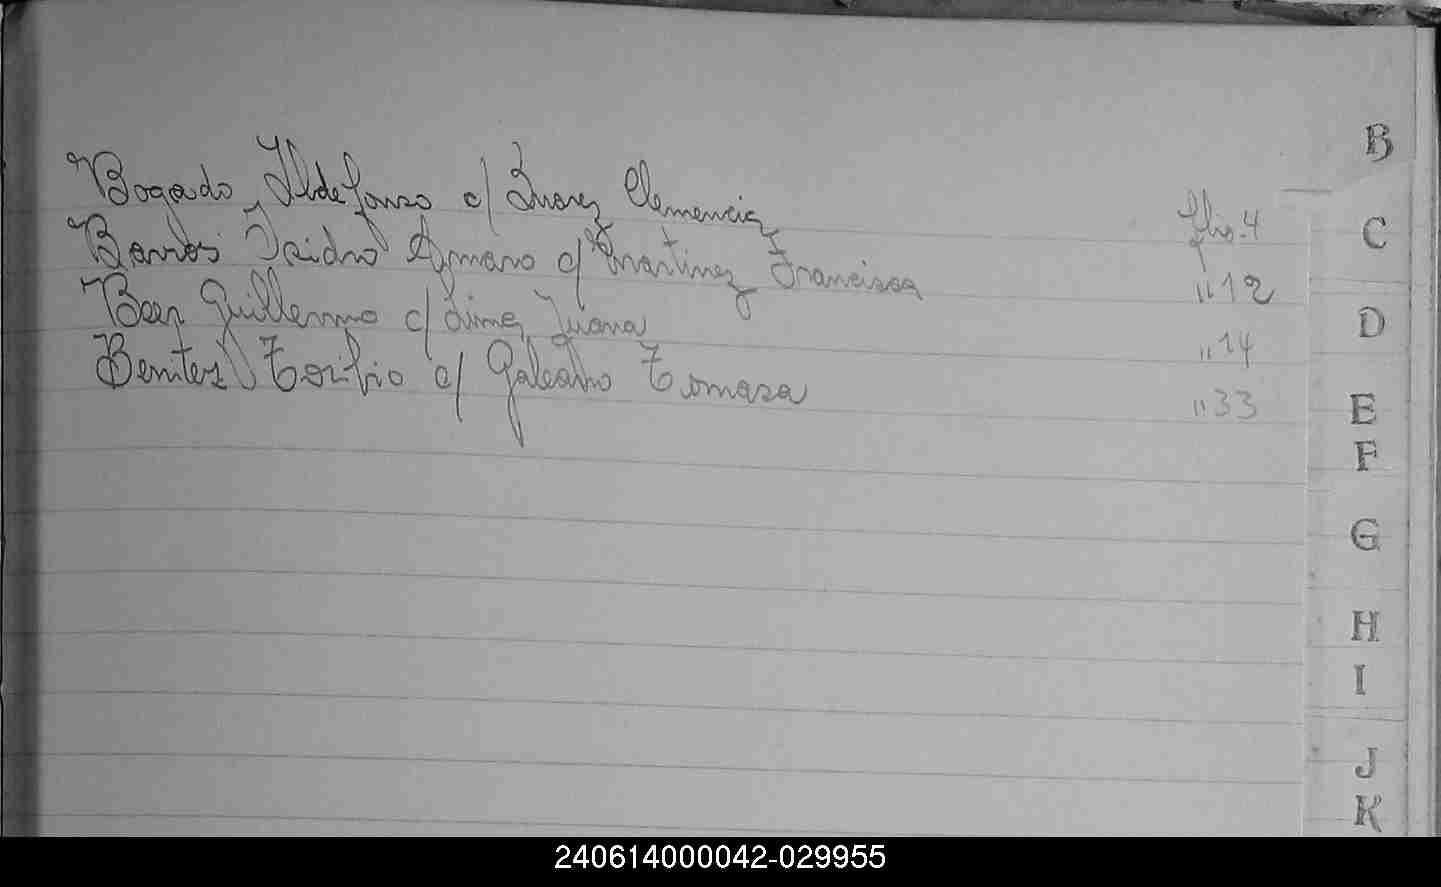 Bogado Ildefonso c/ Suarez Clemencia flio. 4
Barrios Isidro Amaro c/ Martinez Francisca " 12
Baez Guillermo c/ Juana " 14
Benitez Toribio c/ Galeano Tomasa " 33
B
C
D
E
F
G
H
I
J
K
240614000042-029955